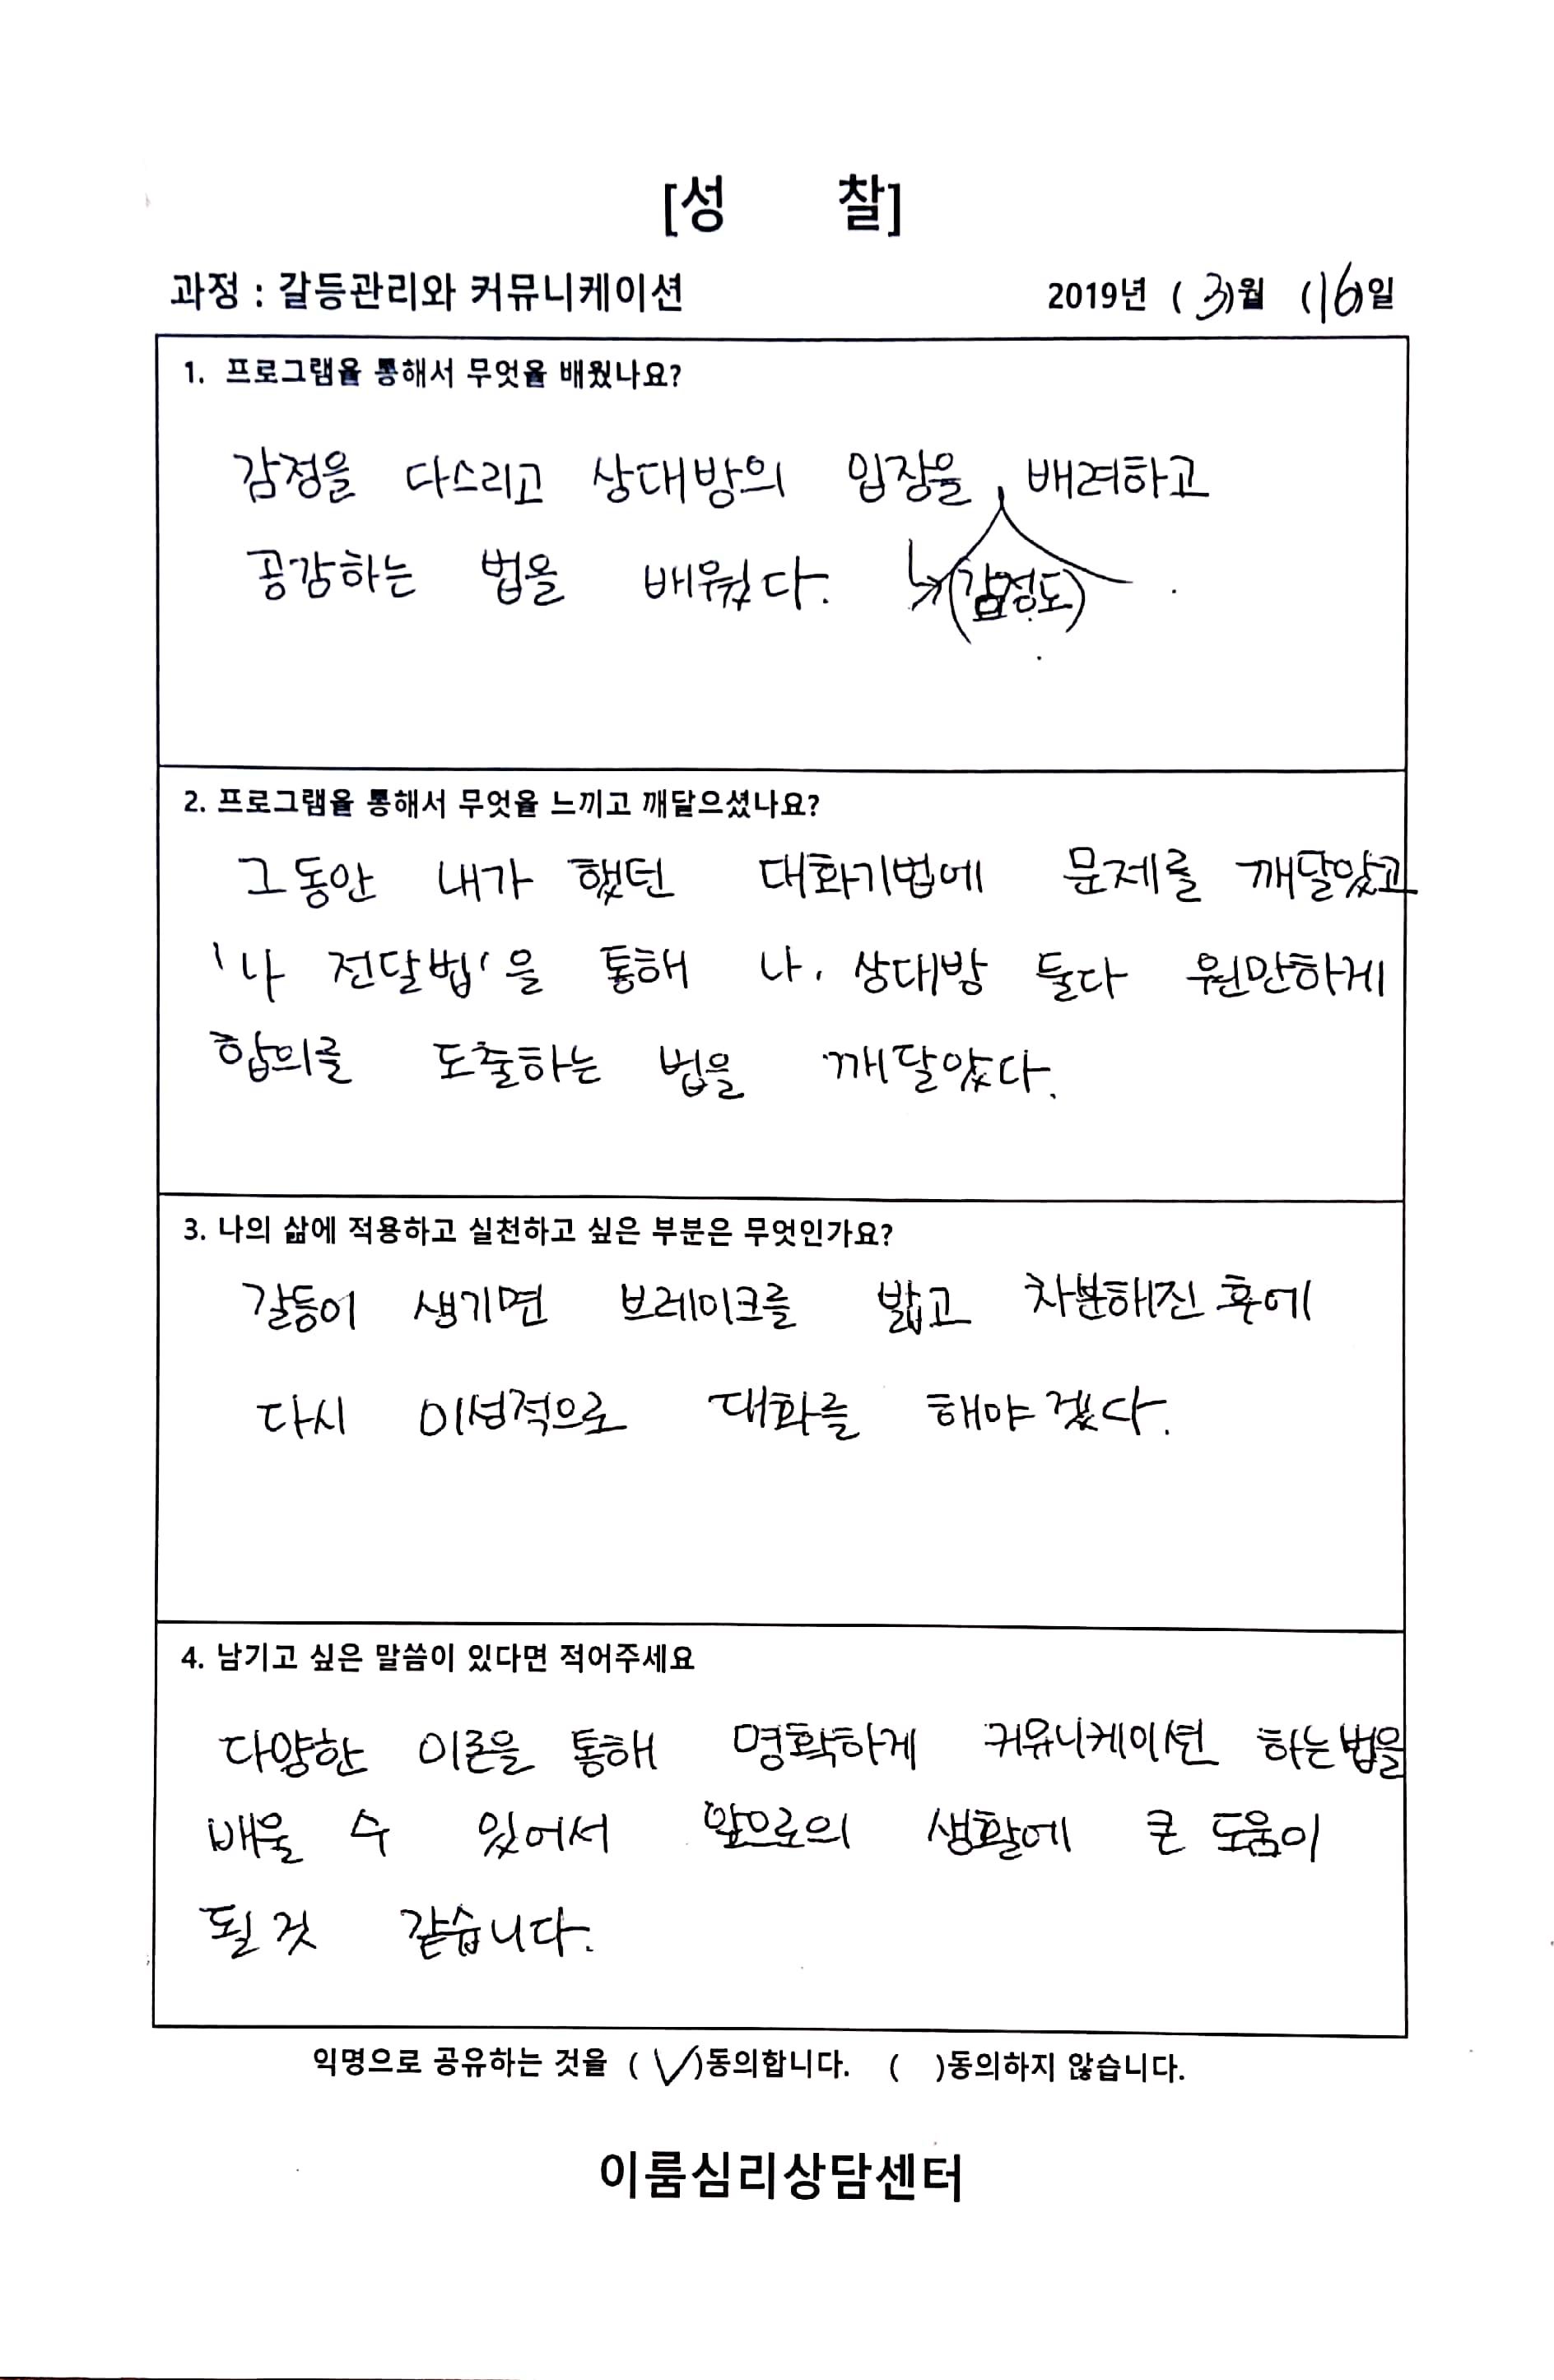 [성 찰]
과정 : 갈등관리와 커뮤니케이션 2019년 (3)월 (16)일
1. 프로그램을 통해서 무엇을 배웠나요?
감정을 다스리고 상대방의 입장을, 배려하고
공감하는 법을 배웠다. (감정도)
2. 프로그램을 통해서 무엇을 느끼고 깨달으셨나요?
그동안 내가 했던 대화기법에 문제를 깨달았고
'나 전달법'을 통해 나, 상대방 둘다 원만하게
합의를 도출하는 법을 깨달았다.
3. 나의 삶에 적용하고 실천하고 싶은 부분은 무엇인가요?
갈등이 생기면 브레이크를 밟고 차분해진 후에
다시 이성적으로 대화를 해야겠다.
4. 남기고 싶은 말씀이 있다면 적어주세요
다양한 이론을 통해 명확하게 커뮤니케이션 하는법을
배울 수 있어서 앞으로의 생활에 큰 도움이
될 것 같습니다.
익명으로 공유하는 것을 (✓)동의합니다. ( )동의하지 않습니다.
이룸심리상담센터